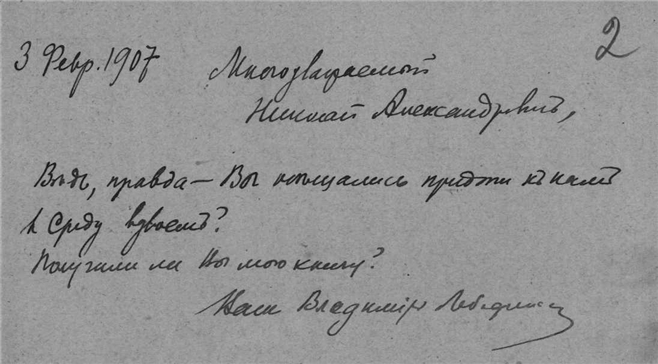 2
3 Февр. 1907 Многоуважаемый
Николай Александровичъ,
Вѣдь, правда — Вы обѣщались придти къ намъ
въ Среду вдвоемъ?
Получили ли Вы мою книгу?
Вашъ Владиміръ